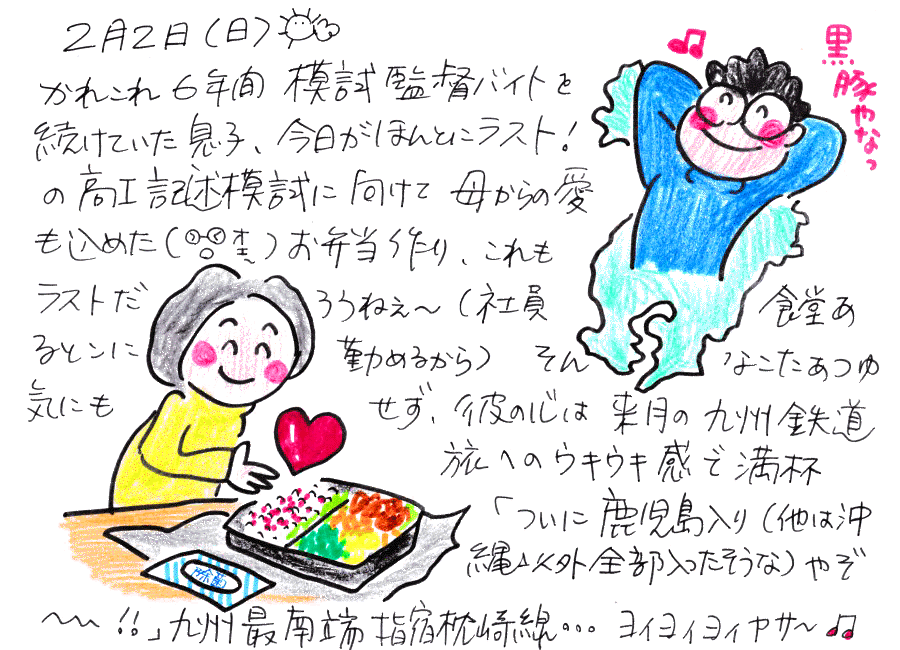 2月2日(日)
黒豚やなっ
かれこれ6年間 模試監督バイトを
続けていた息子、今日がほんとにラスト!
の高工記述模試に向けて 母からの愛
も込めた( オモ)お弁当作り、これも
ラストだろうねぇ〜(社員食堂あ
るとこに勤めるから) そんなこたあつゆ
気にもせず、彼の心は来月の九州鉄道
旅へのウキウキ感で満杯
「ついに鹿児島入り(他は沖
縄以外全部入ったそうな)やぞ
〜〜!!」九州最南端指宿枕崎線… ヨイヨイヨイヤサ〜♫